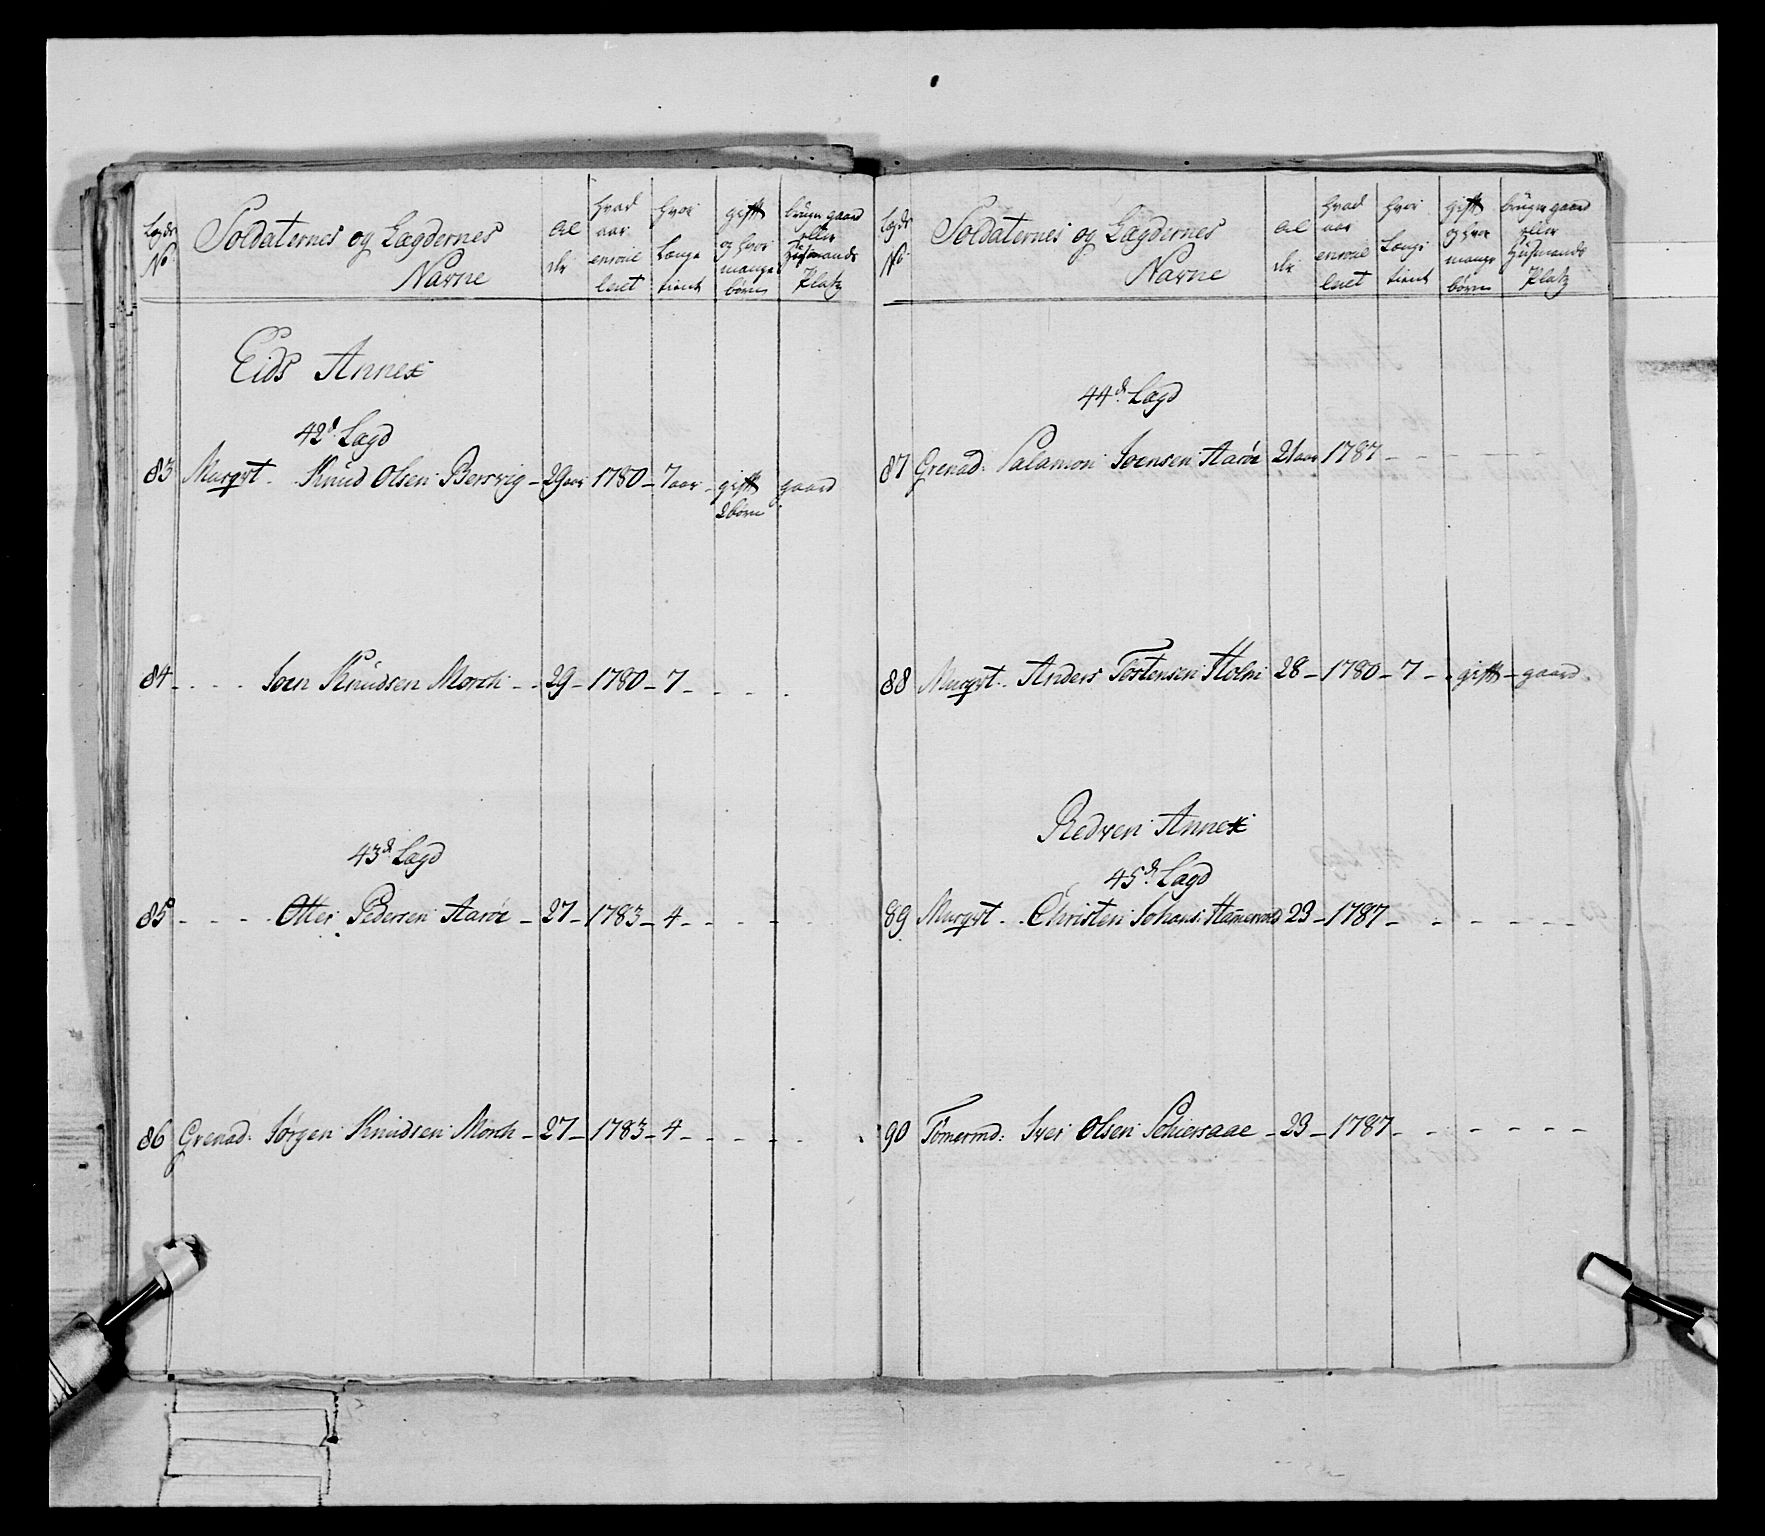 Lagds No Soldaternes og Lægdernes Navne Al der hvad aar enroul leret hvor længe tient gift og hvor mange børn bruger gaard eller Huusmands Platz
Eids Annex
42d Lagd
83 Musqvt. Knud Olsen Bersvig - 29 aar 1780 - 7 aar - gift 2 børn gaard
84 - - - - Joen Knudsen Morch - - 29 - 1780 - 7 - - - -
43d Lagd
85 - - - - Otter Pedersen Aarøe - 27 - 1783 - 4 - - - -
86 Grenad: Jørgen Knudsen Morch - 27 - 1783 - 4 - - - - -
Lagds No Soldaternes og Lægdernes Navne Al der hvad aar enroul leret hvor længe tient gift og hvor mange børn bruger gaard eller Huusmands Platz
44d Lagd
87 Grenad: Salamon Joensen Aarøe 21 aar 1787 - - - - - -
88 Musqvt. Anders Tostensen Holm 28 - 1780 - 7 - - gift - gaard.
Redven Annex
45d Lagd
89 Musqvt. Christen Johans: 23 - 1787 - - - - - -
90 Tømermd: Iver Olsen - 23 - 1787 - - - - - -